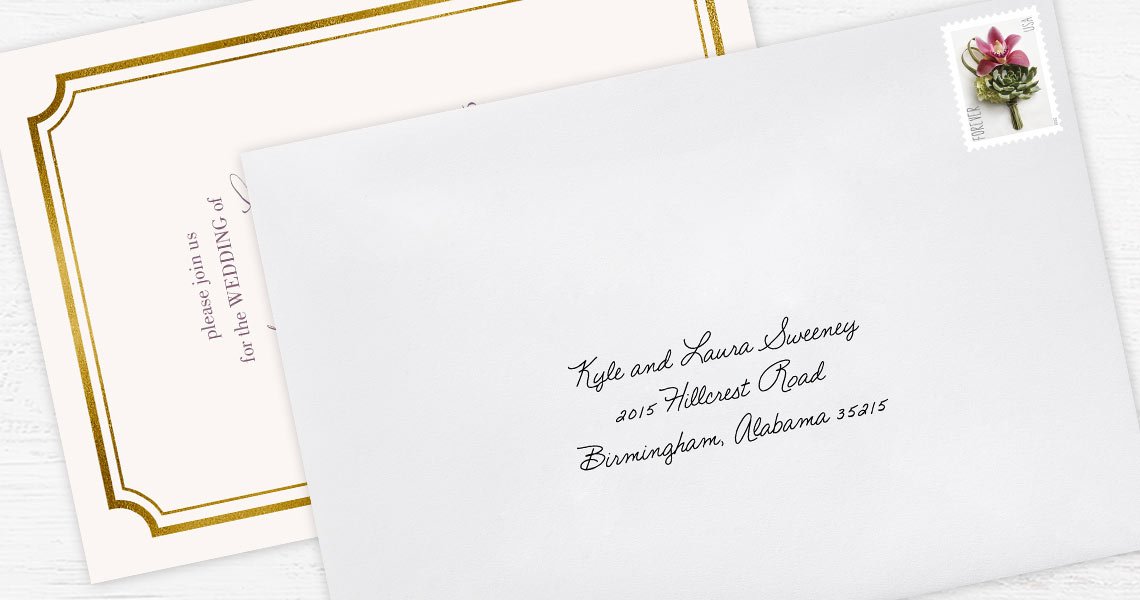 please join us
for the WEDDING of
FOREVER
USA
Kyle and Laura Sweeney
2015 Hillcrest Road
Birmingham, Alabama 35215